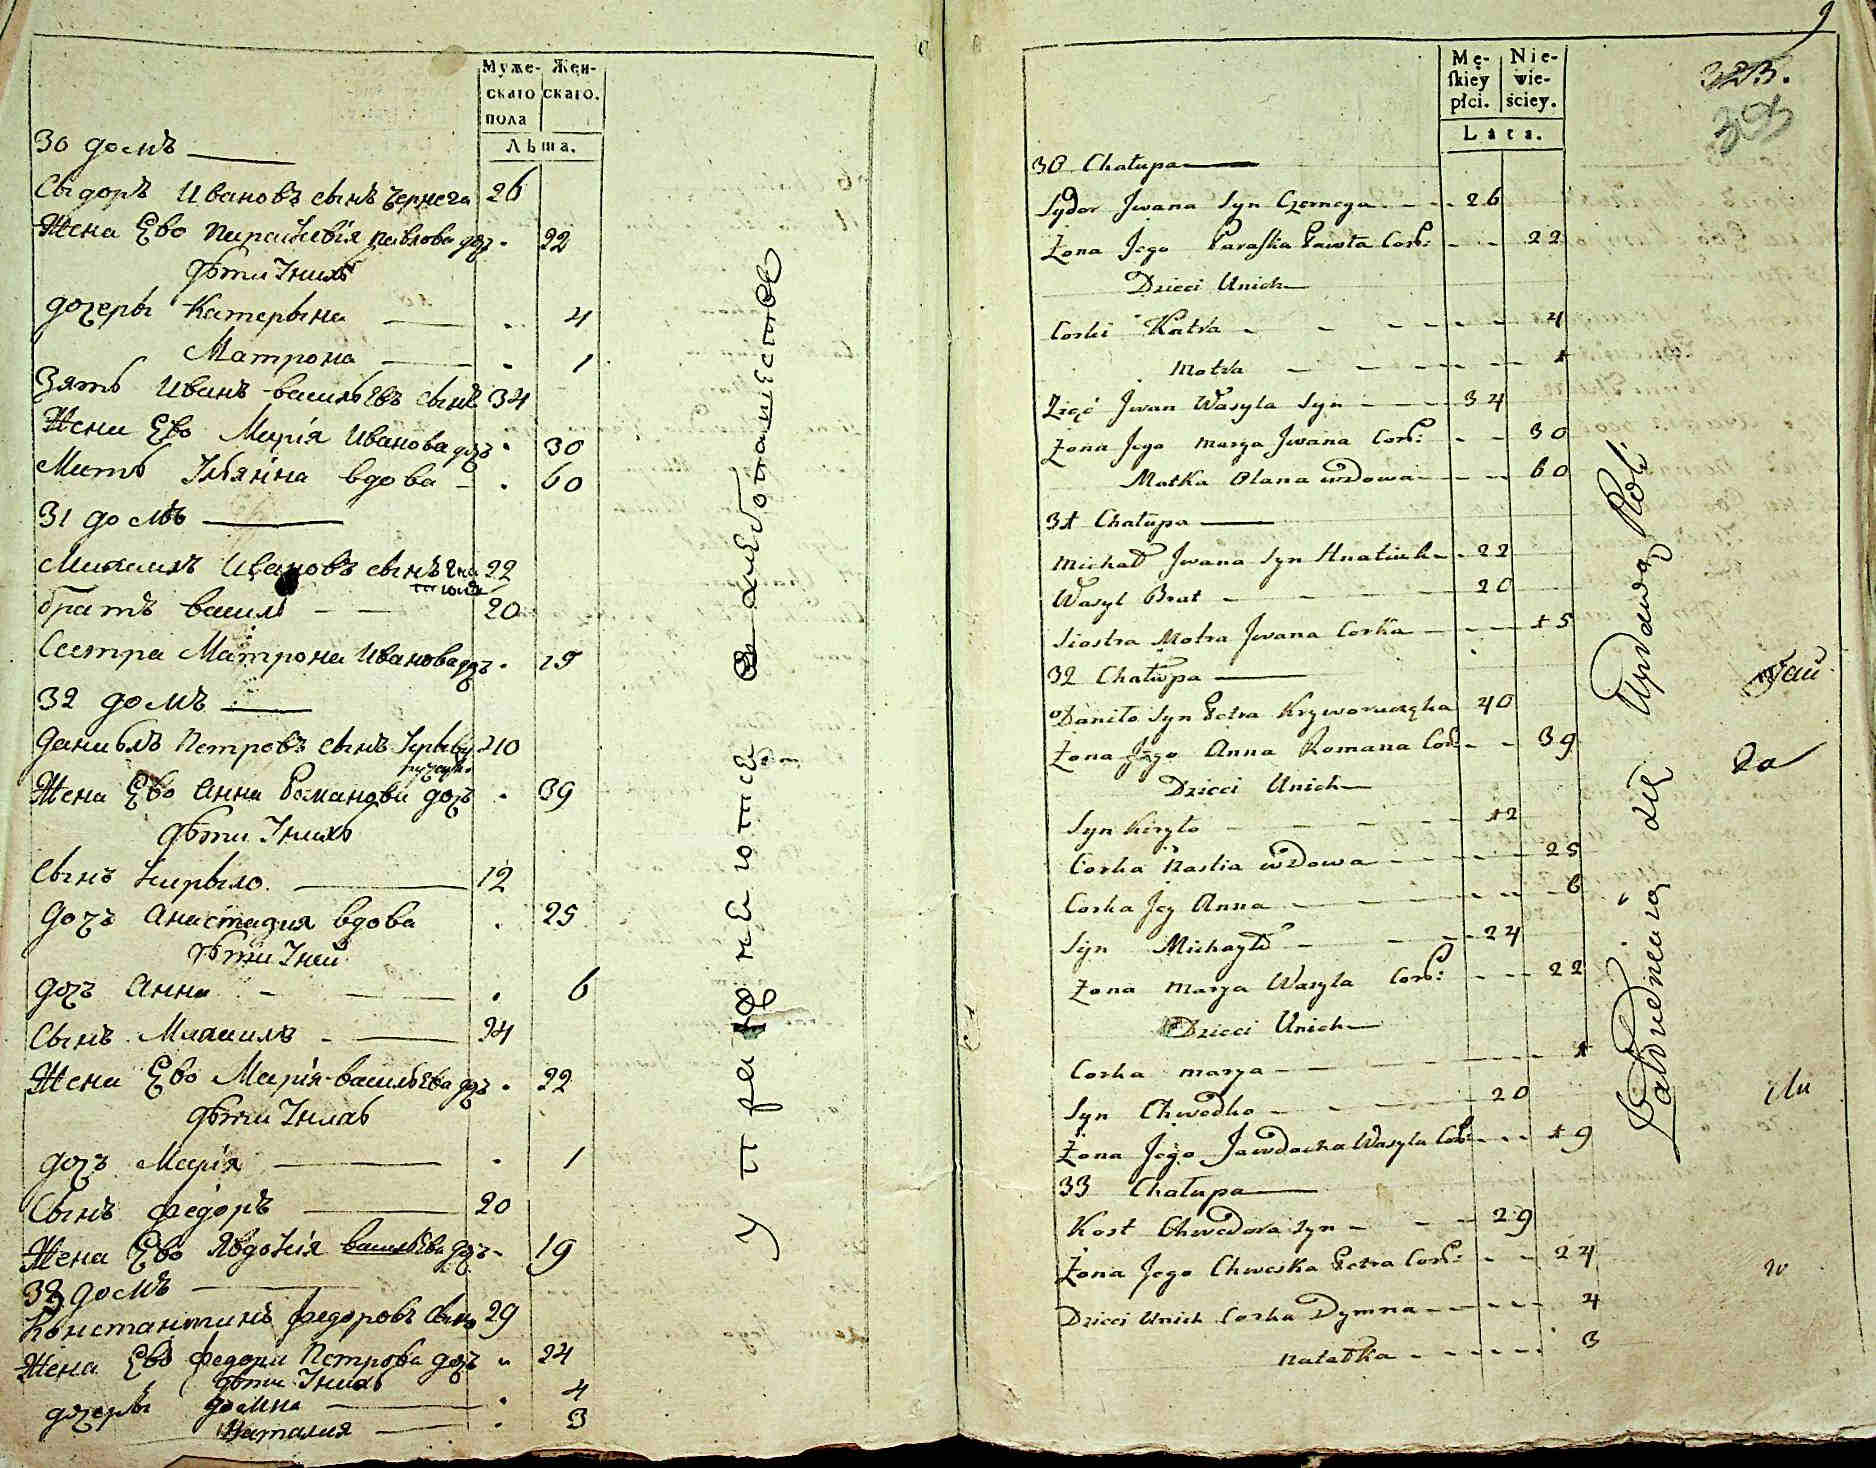 Муже- Жен-
скаго скаго.
пола
Лѣта.
30 домъ
Сыдоръ Ивановъ сынъ Чернега 26
Жена Ево Параскевія Павлова доч. 22
Дѣти Унихъ
дочеры Катерына 4
Матрона 1
Зять Иванъ васильевъ сынъ 34
Жена Ево Марія Иванова доч. 30
Мать Ульянна вдова 60
31 домъ
Михаилъ Ивановъ сынъ Гна 22
тюкъ
братъ василь 20
Сестра Матрона Иванова доч. 15
32 домъ
Даныилъ Петровъ сынъ Крыву 40
Жена Ево Анна Романова дочъ 39
Дѣти Унихъ
Сынъ Кирыло 12
Дочъ Анастазия вдова 25
Дѣти Уней
дочъ Анна 6
Сынъ Михаилъ 24
Жена Ево Марія васильева доч. 22
Дѣти Унихъ
дочъ Марія 1
Сынъ Федоръ 20
Жена Ево Явдокія васильева доч. 19
33 домъ
Константинъ Федоровъ сынъ 29
Жена Ево Федора Петрова дочъ 24
Дѣти Унихъ
дочеры Домна 4
Наталия 3
упражнеются в хлебопашестве
9
323.
Mę- Nie-
skiey wie-
płci. ściey.
Lata.
30 Chałupa
Sydor Jwana Syn Czernega 26
Żona Jego Paraska Pawła Cor: 22
Dzieci Unich
Corki Katra 4
Motra 1
Zięć Jwan Wasyla Syn 34
Żona Jego Marya Jwana Cor: 30
Matka Olana wdowa 60
31 Chałupa
Michał Jwana Syn Hnatiuk 22
Wasyl Brat 20
Siostra Motra Jwana Corka 15
32 Chałupa
Daniło Syn Petra Kryworuczka 40
Żona Jego Anna Romana Cor: 39
Dzieci Unich
Syn Kiryło 12
Corka Nastia wdowa 25
Corka Jey Anna 6
Syn Michayło 24
Żona Marya Wasyla Cor: 22
Dzieci Unich
Corka Marya 1
Syn Chwedko 20
Żona Jego Jawdocka Wasyla Cor: 19
33 Chałupa
Kost Chwedora Syn 29
Żona Jego Chweska Petra Cor: 24
Dzieci Unich Corka Dymna 4
Natałka 3
Zatrudneiuą się Uprawą Roli